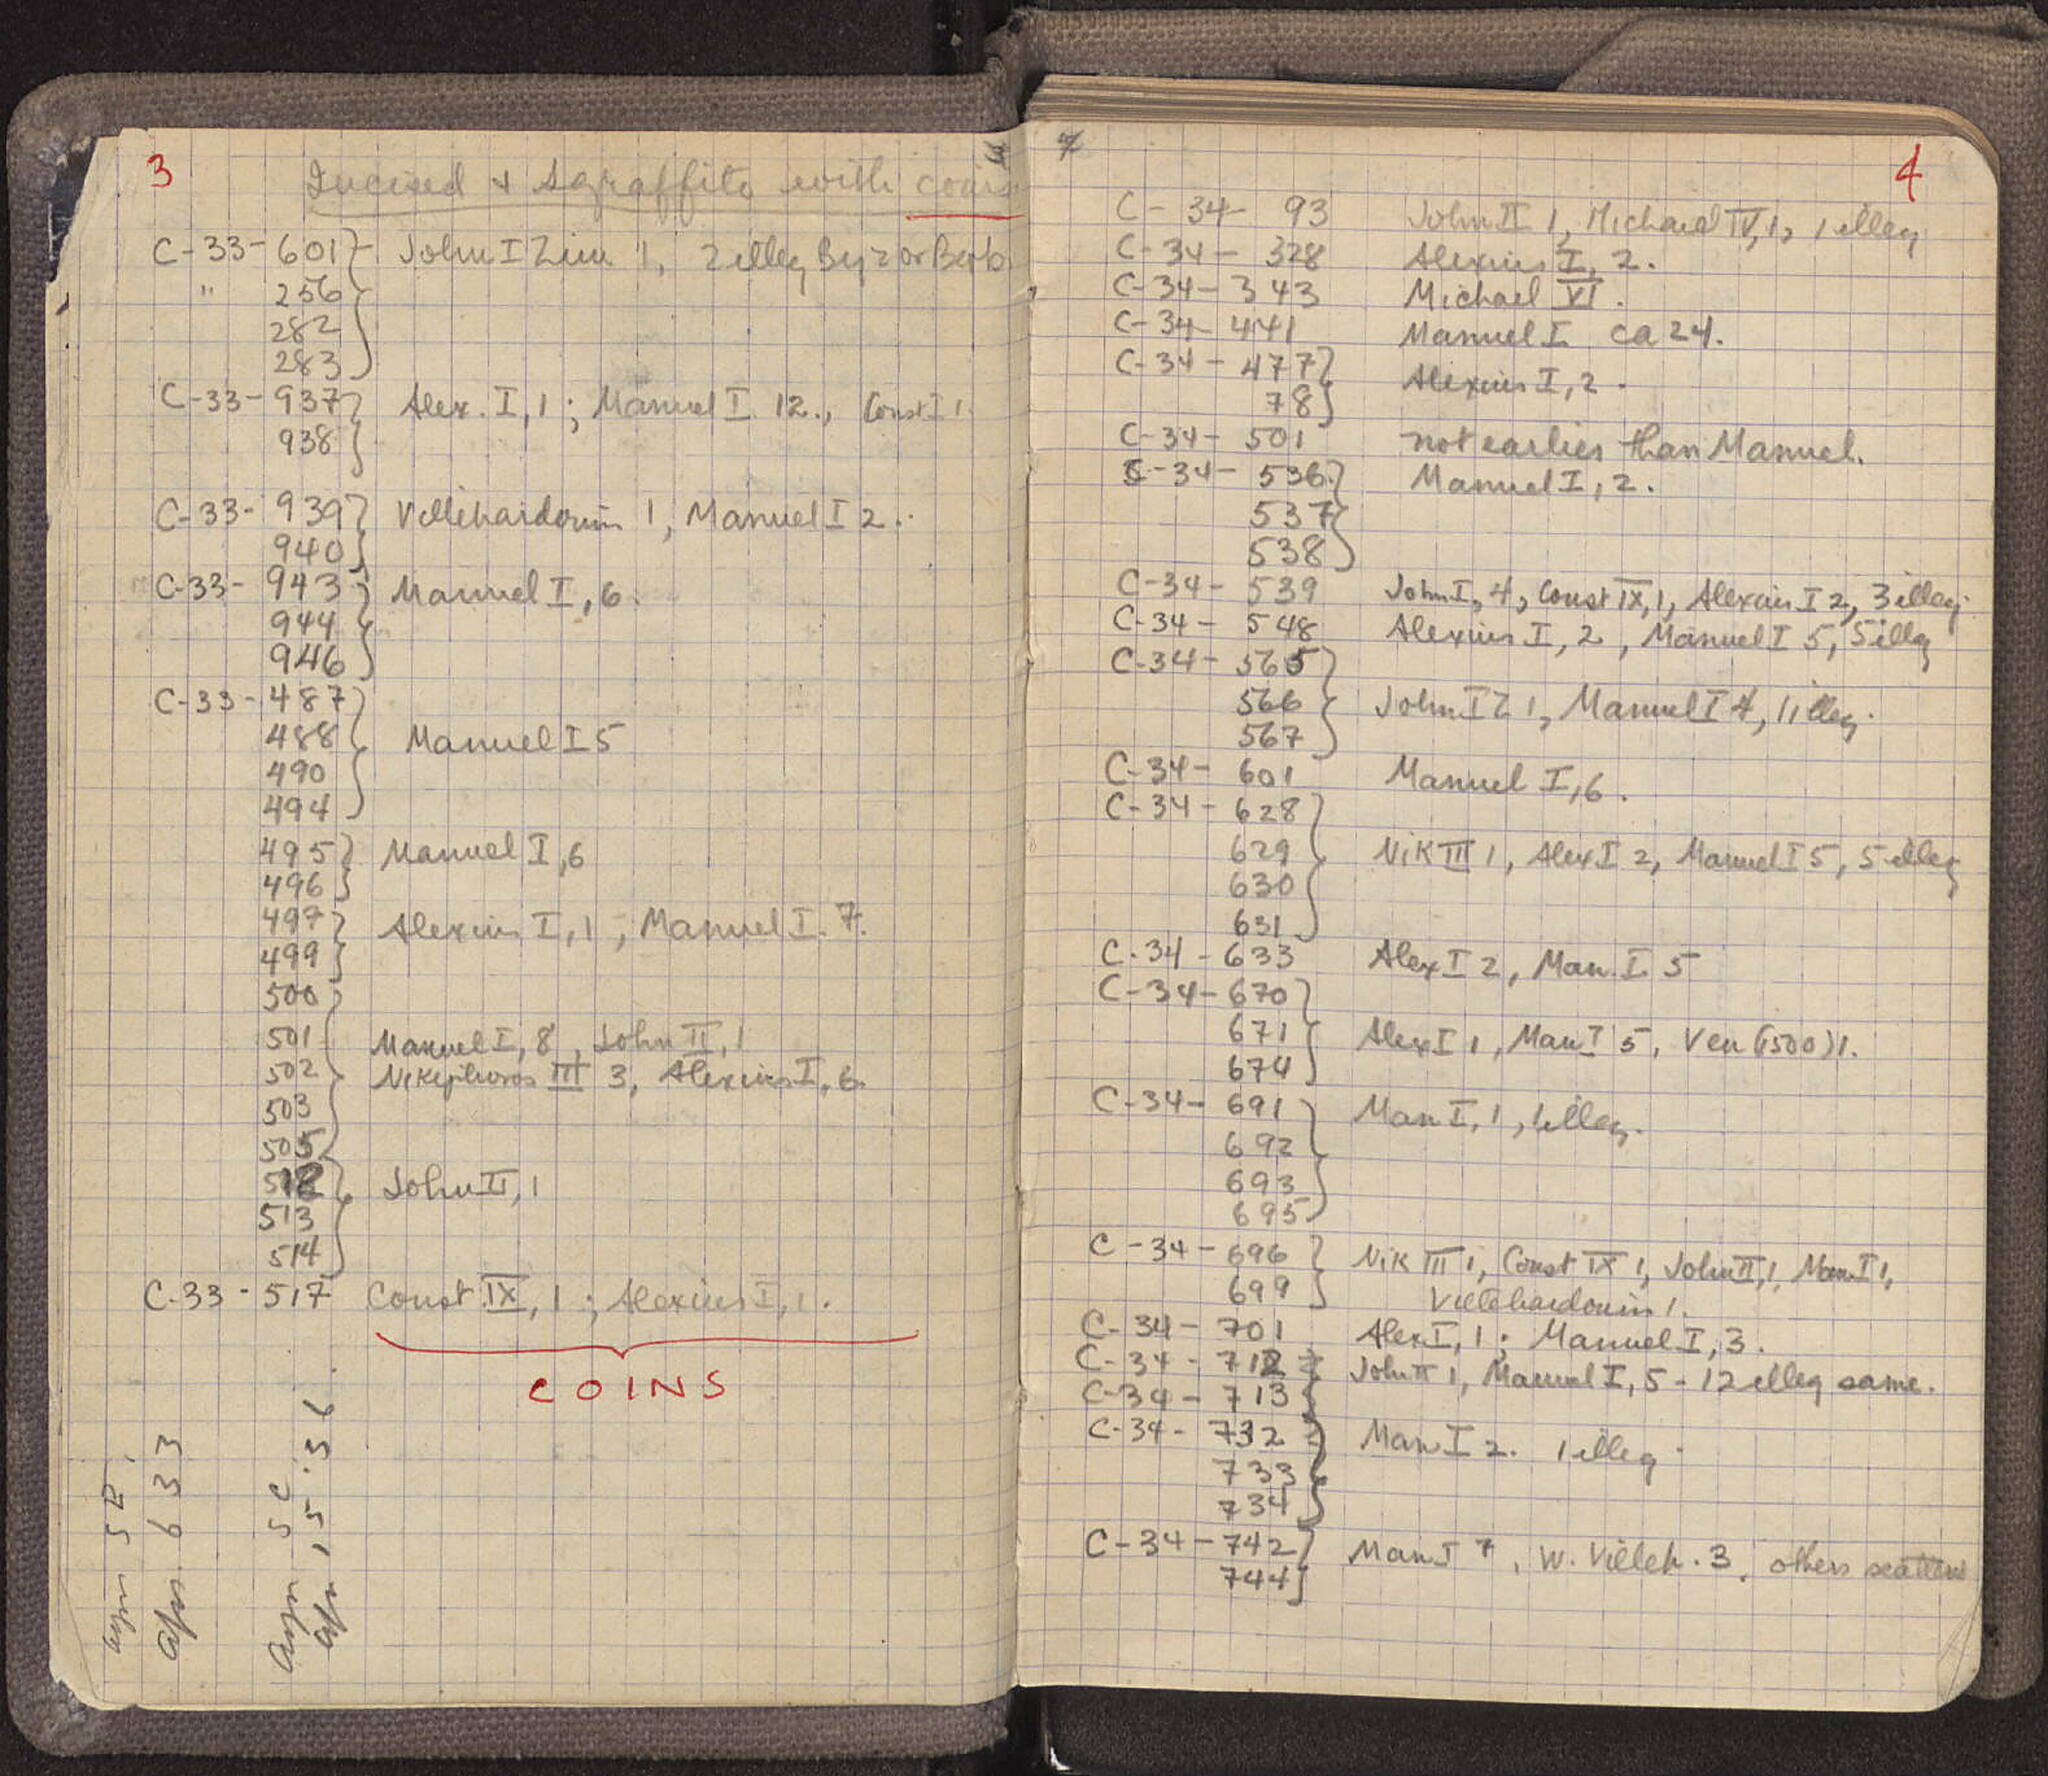 3
Incised & Sgraffito with coins
C-33-601 John I Zim 1, 2 illeg Byz or Barb.
" 256
282
283
C-33-937 Alex. I, 1; Manuel I 12., Const I 1.
938
C-33-939 Villehardouin 1, Manuel I 2.
940
C-33-943 Manuel I, 6.
944
946
C-33-487
488 Manuel I 5
490
494
495 Manuel I, 6
496
497 Alexius I, 1, Manuel I. 7.
499
500
501 Manuel I, 8, John II, 1
502 Nikephoros III 3, Alexius I, 6.
503
505
512 John II, 1
513
514
C-33-517 Const. IX, 1; Alexius I, 1.
COINS
4
C-34-93 John II 1, Michael IV, 1, 1 illeg
C-34-328 Alexius I, 2.
C-34-343 Michael VI.
C-34-441 Manuel I ca 24.
C-34-477 Alexius I, 2.
78
C-34-501 not earlier than Manuel.
C-34-536 Manuel I, 2.
537
538
C-34-539 John I, 4, Const IX, 1, Alexius I 2, 3 illeg.
C-34-548 Alexius I, 2, Manuel I 5, 5 illeg
C-34-565
566 John I Z 1, Manuel I 4, 1 illeg.
567
C-34-601 Manuel I, 6.
C-34-628
629 Nik III 1, Alex I 2, Manuel I 5, 5 illeg
630
631
C-34-633 Alex I 2, Man. I 5
C-34-670
671 Alex I 1, Man I 5, Ven (1500) 1.
674
C-34-691 Man I, 1, 1 illeg.
692
693
695
C-34-696 Nik III 1, Const IX 1, John II, 1, Man I 1,
699 Villehardouin 1.
C-34-701 Alex I, 1; Manuel I, 3.
C-34-712 John II 1, Manuel I, 5 - 12 illeg same.
C-34-713
C-34-732 Man I 2. 1 illeg.
733
734
C-34-742 Man I 7, W. Villeh. 3, others
744